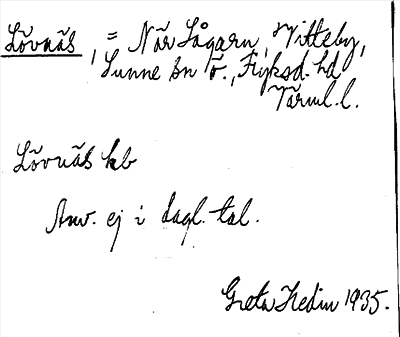 Lövnäs, = När Sågarn, Vitteby,
Sunne sn ö., Fryksd. hd
Värml. l.
Lövnäs hb
Anv. ej i dagl. tal.
Greta Hedin 1935.